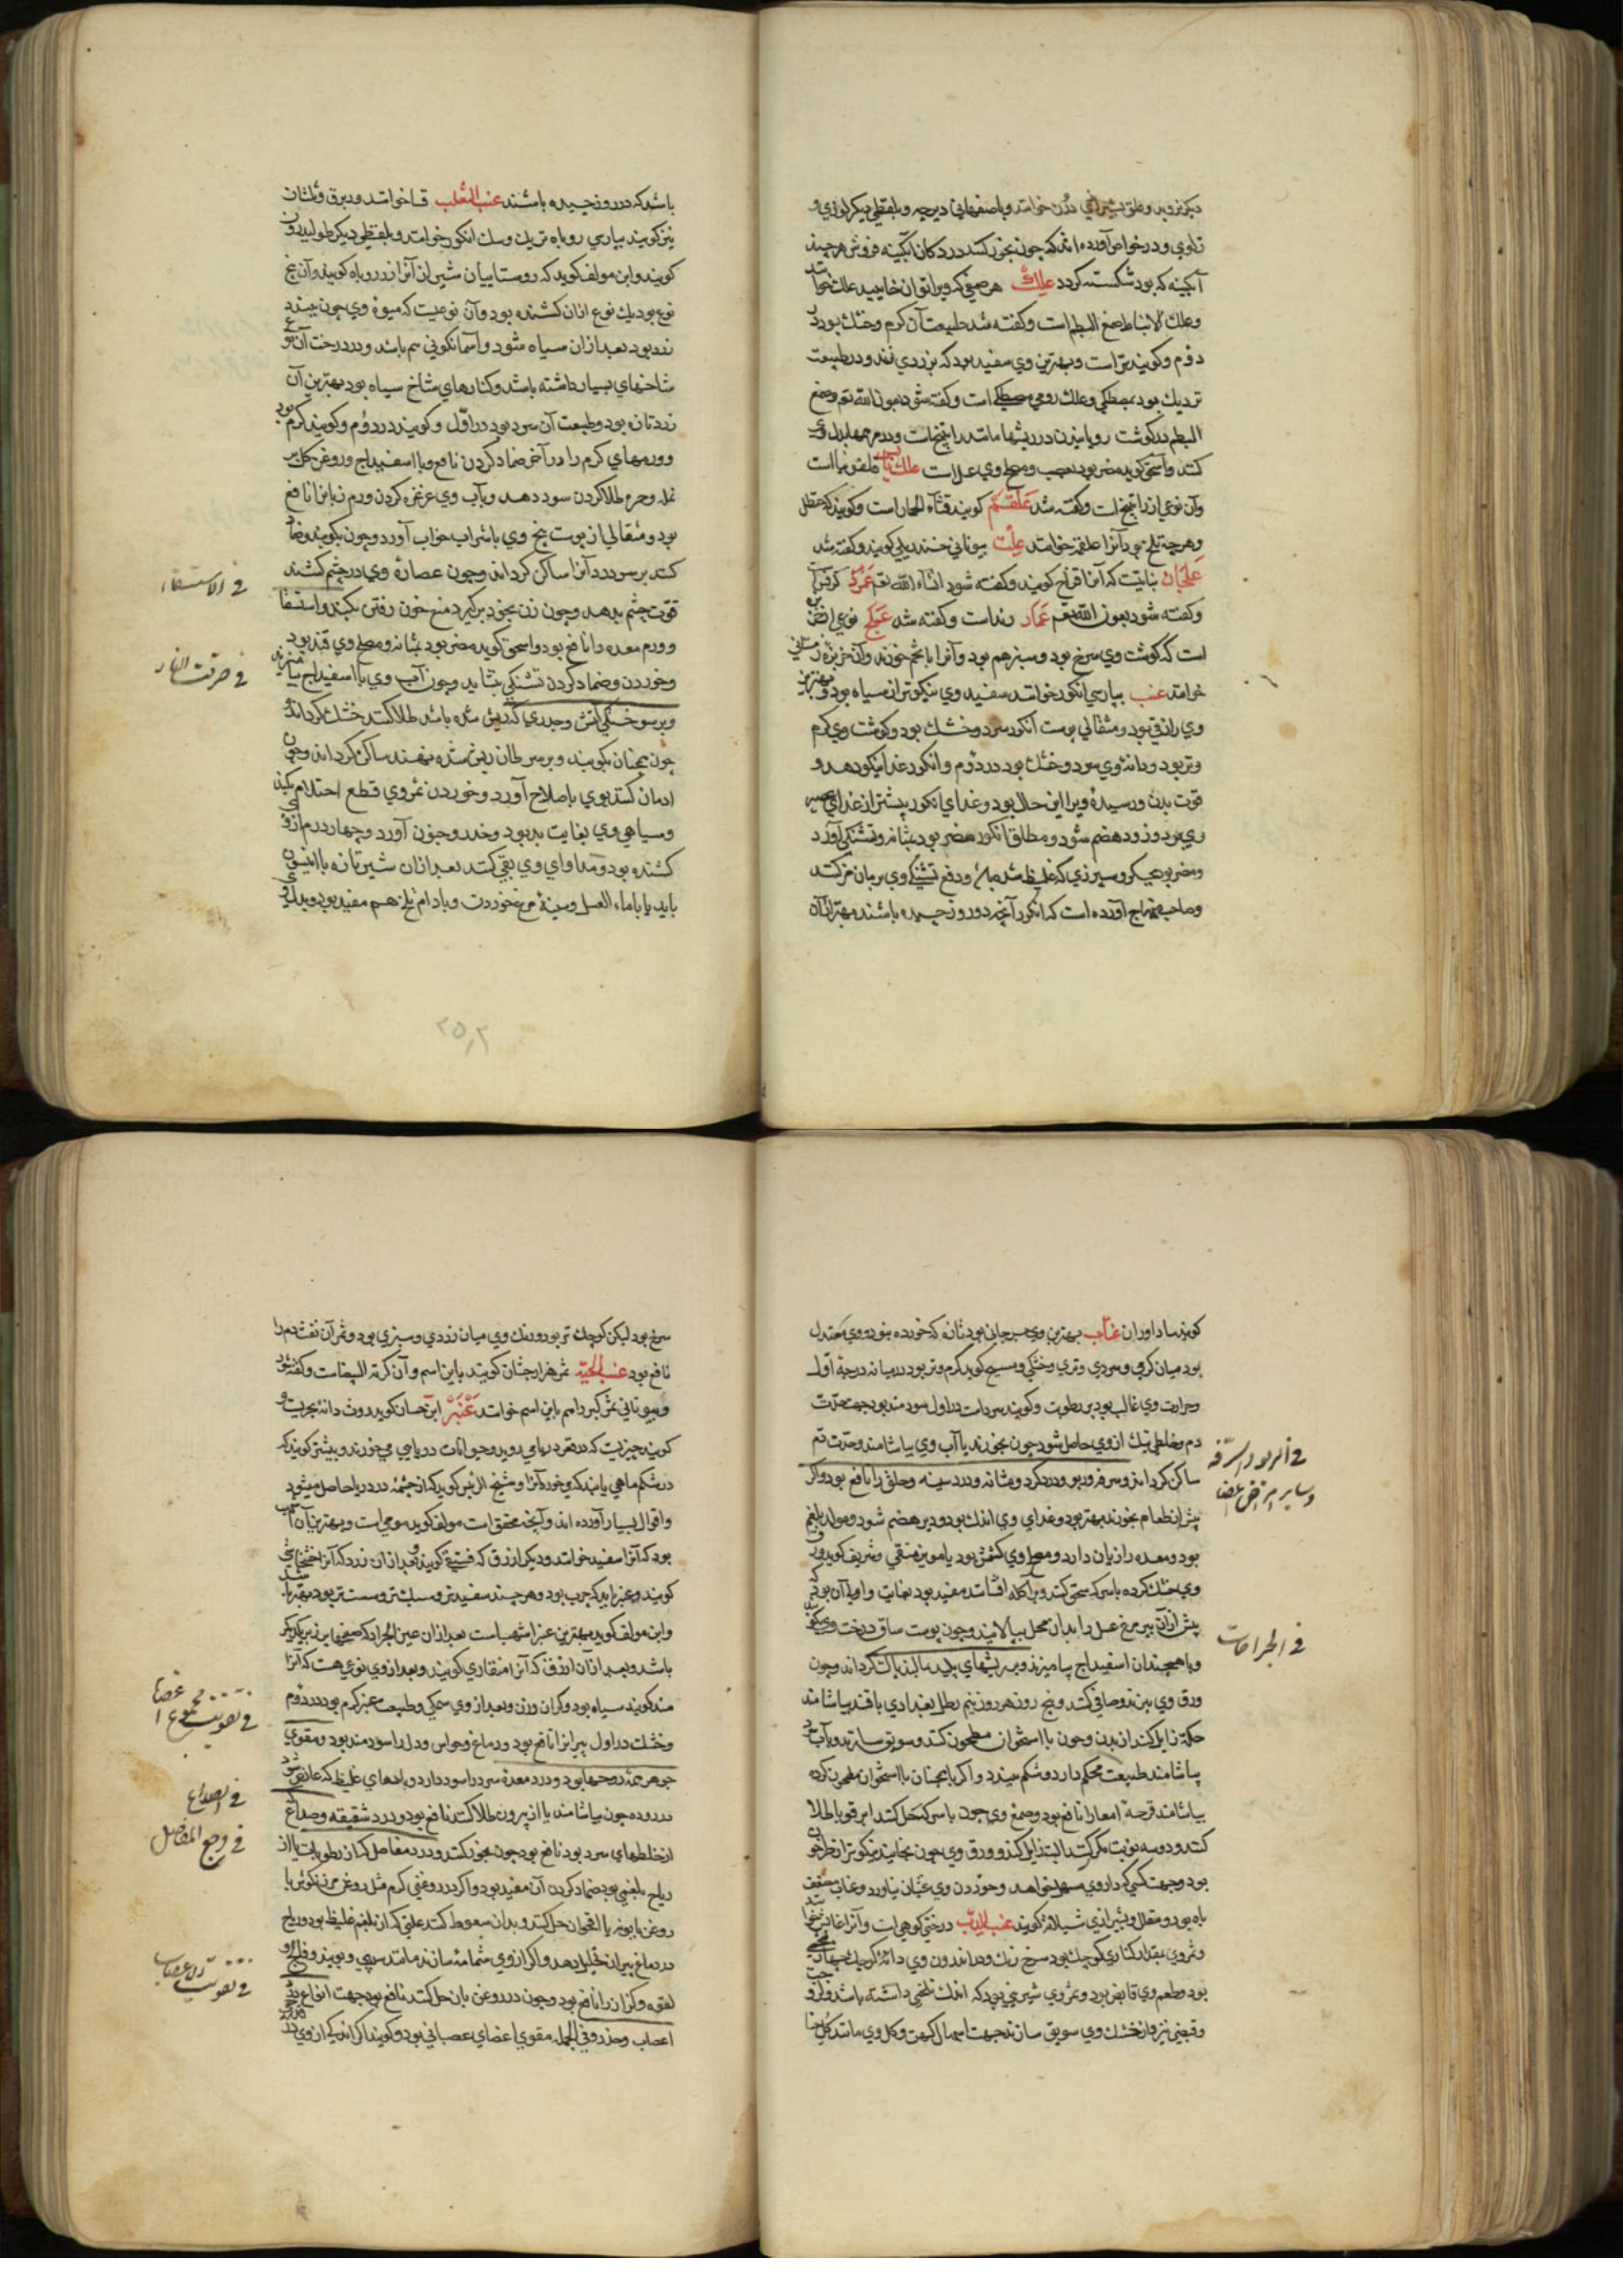 آبکینه که بود شکسته کردد علك هر صمغی که ویرا توان خایید علك خوانند
وعلك الانباط صمغ البطم است وکفته شد طبیعت آن کرم وخشك بود در
دوم وکویند تر است وبهترین وی سفید بود که بزردی زند ودر طبیعت
نزدیك بود بمصطکی وعلك رومی مصطکی است وکفته شود بعون الله تعم وصمغ
البطم در کوشت رویانیدن در ریشها مانند راتینج است
کند واسحق کوید مضر بود بعصب ومصلح وی عسل است علك یابس قلفونیا است
وآن نوعی از راتینج است وکفته شد علقم کویند قثاء الحمار است وکویند که حنظل
وهر چه تلخ بود آنرا علقم خوانند علث بیونانی خندریلی کویند وکفته شد
علجان نباتیست که آنرا کویند وکفته شود انشاء الله تعم
وکفته شود بعون الله تعم عماد رند است وکفته شد نوعی از
است که کوشت وی سرخ بود وسبز هم بود وآنرا با تخم خورند وآن خربزه زمستانی
خوانند عنب بپارسی انکور خوانند سفید وی نیکوتر از سیاه بود وبهترین
وی رازقی بود ومثقالی پوست انکور سرد وخشك بود وکوشت وی کرم
وتر بود ودانهٔ وی سرد وخشك بود در دوم وانکور غذا نیکو دهد و
قوت بدن ورسیدهٔ ویرا این حال بود وغذای انکور بیشتر از غذای عصیر
وی بود وزود هضم شود ومطلق انکور مضر بود بمثانه وتشنکی آورد
ومضر بود بجکر وسپرزی که غلیظ شده باشد ودفع تشنکی وی برمان مز کنند
وصاحب منهاج آورده است که انکور آنچه دو روز چیده باشند بهتر از آن
باشد که در روز چیده باشند عنب الثعلب فنا خوانند وبرق وثلثان
نیز کویند بپارسی روباه تربك وسك انکور خوانند وبلفظی دیکر طولیدون
کویند وابن مولف کوید که روستاییان شیراز آنرا زرروباه کویند وآن پنج
نوع بود یك نوع ازان کشنده بود وآن نوعیست که میوهٔ وی چون ببندد
زرد بود بعد ازان سیاه شود وآسمانکونی سم باشد ودر درخت آن نوع
شاخهای بسیار داشته باشد وکنارهای شاخ سیاه بود بهترین آن
زرد تازه بود وطبیعت آن سرد بود در اول وکویند در دوم وکویند کرم بود
وورمهای کرم را در آخر ضماد کردن نافع وبا اسفیداج وروغن کل بر
نمله وحمره طلا کردن سود دهد وبآب وی غرغره کردن ورم زبانرا نافع
بود ومثقالی از پوست بیخ وی با شراب خواب آورد وچون بکوبند وضماد
کنند بر سر درد آنرا ساکن کرداند وچون عصارهٔ وی در چشم کشند
قوت چشم بدهد وچون زن بخود برکیرد منع خون رفتن بکند واستسقا
وورم معده را نافع بود واسحق کوید مضر بود بمثانه ومصلح وی قند بود
وخوردن وضماد کردن تشنکی بنشاند وچون آب وی با اسفیداج بیامیزند
وبر سوختکی آتش وجدری که ریش شده باشد طلا کنند خشك کرداند
چون همچنان بکوبند وبر سرطان ریش شده نهند ساکن کرداند وچون
ادمان کنند بوی باصلاح آورد وخوردن ثمر وی قطع احتلام بکند
وسیاهی وی بغایت بد بود وخدر وجنون آورد وچهار درم از وی
کشنده بود ومداوای وی بقی کنند بعد ازان شیر تازه با انیسون
باید یا با ماء العسل وسینهٔ مرغ خوردن وبادام تلخ هم مفید بود وبدل وی
فی الاستسقاء
فی حرقت النار
۲۵۲
کویند ساداوران عناب بهترین وی جرجانی بود تازه که خورده نبود ووی معتدل
بود میان کرمی وسردی وتری وخشکی ومسیح کوید کرم وتر بود در میانه درجهٔ اول
وحرارت وی غالب بود بر رطوبت وکویند سرد است در اول سودمند بود جهت حدت
دم وخلطی نیك از وی حاصل شود چون بخورند یا آب وی بیاشامند وحدت دم
ساکن کرداند وسرفه وربو ودرد کرده ومثانه ودرد سینه وحلق را نافع بود واکر
پیش از طعام بخورند بهتر بود وغذای وی اندك بود ودیر هضم شود ومولد بلغم
بود ومعده را زیان دارد ومصلح وی کشمش بود یا مویز منقی وشریف کوید ورق
وی خشك کرده باسرکه سحق کنند وبر آکله افشانند مفید بود بغایت واولی آن بود که
پیش ازان بپر مرغ عسل را بدان محل بیالایند وچون پوست ساق درخت وی بکوبند
وبا همچندان اسفیداج بیامیزند وبر ریشهای پلید مالند پاك کرداند وچون
ورق وی بپزند وصافی کنند وپنج روز هر روز نیم رطل بغدادی باقند بیاشامند
حکه زایل کند از بدن وچون با استخوان مطحون کنند وسویق سازند وبآب سرد
بیاشامند طبیعت محکم دارد وشکم ببندد واکر همچنان با استخوان مطحون کرده
بیاشامند قرحهٔ امعا را نافع بود وصمغ وی چون باسرکه حل کنند وبر قوبا طلا
کنند ودو سه نوبت مکرر کنند البته زایل کند وورق وی چون بخایند نیکوتر از طرخون
بود وجهت کسی که داروی مسهل خواهد وخوردن وی غثیان نیاورد وعناب مضعف
باه بود ومقلل وبشیرازی شیلانه کویند عنب الدب درختی کوهی است
وثمر وی بمقدار کناری کوچك بود سرخ رنك واندرون وی دانهٔ کوچك
بود وطعم وی قابض بود وثمر وی شیرینی بود که اندك تلخی داشته باشد
وقبضی نیز واز خشك وی سویق سازند جهت اسهال کهن وکل وی مانند کل حنا
فی الربو والسرفه
وسایر امراض اعضا
فی الجراحات
سرخ بود لیکن کوچك تر بود ورنك وی میان زردی وسبزی بود وثمر آن نفث دم را
نافع بود عنب الحیه ثمر هزارجشان کویند باین اسم وآن کرمة البیضاست وکفته شود
وبیونانی ثمر کبر را هم باین اسم خوانند عنبر ابن حسان کوید روث دابهٔ بحریست
کویند چیزیست که در قعر دریا می روید وحیوانات دریایی می خورند وبیشتر کویند که
در شکم ماهی یابند که می خورد آنرا وشیخ الرئیس کوید که از چشمهٔ در دریا حاصل میشود
واقوال بسیار آورده اند وآنچه محقق است مولف کوید مومی است وبهترین آن اشهب
بود که آنرا سفید خوانند ودیکر ازرق که فستقی کویند وبعد ازان زرد که آنرا خشخاشی
کویند وعنبر باید که چرب بود وهر چند سفیدتر وسبك تر وسست تر بود بهتر باشد
وابن مولف کوید بهترین عنبر اشهب است
باشد وبعد ازان ازرق که آنرا منقاری کویند وبعد از وی نوعی هست که آنرا
مند کویند سیاه بود وکران وزن وبعد از وی سمکی وطبیعت عنبر کرم بود در دوم
وخشك در اول پیرانرا نافع بود ودماغ وحواس ودل را سودمند بود ومقوی
جوهر همه روحها بود ودرد معدهٔ سرد را سود دارد وبادهای غلیظ که عارض شود
در روده چون بیاشامند یا از بیرون طلا کنند نافع بود ودرد شقیقه وصداع
از خلطهای سرد بود نافع بود چون بخور کنند ودرد مفاصل که از رطوبات یا از
ریاح بلغمی بود ضماد کردن آن مفید بود واکر در روغنی کرم مثل روغن مرزنکوش یا
روغن بابونه یا اقحوان حل کنند وبدان سعوط کنند علتی که از بلغم غلیظ بود وریاح
در دماغ پیران تحلیل دهد واکر از وی شمامه سازند مانند سیبی وببویند وفالج و
لقوه وکزاز را نافع بود وچون در روغن بان حل کنند نافع بود جهت انواع درد
اعصاب وخدر وفی الجمله مقوی اعضای عصبانی بود وکویند اکر اندکی از وی در
فی تقویت مجموع اعضا
فی الصداع
فی وجع المفاصل
فی تقویت الاعصاب